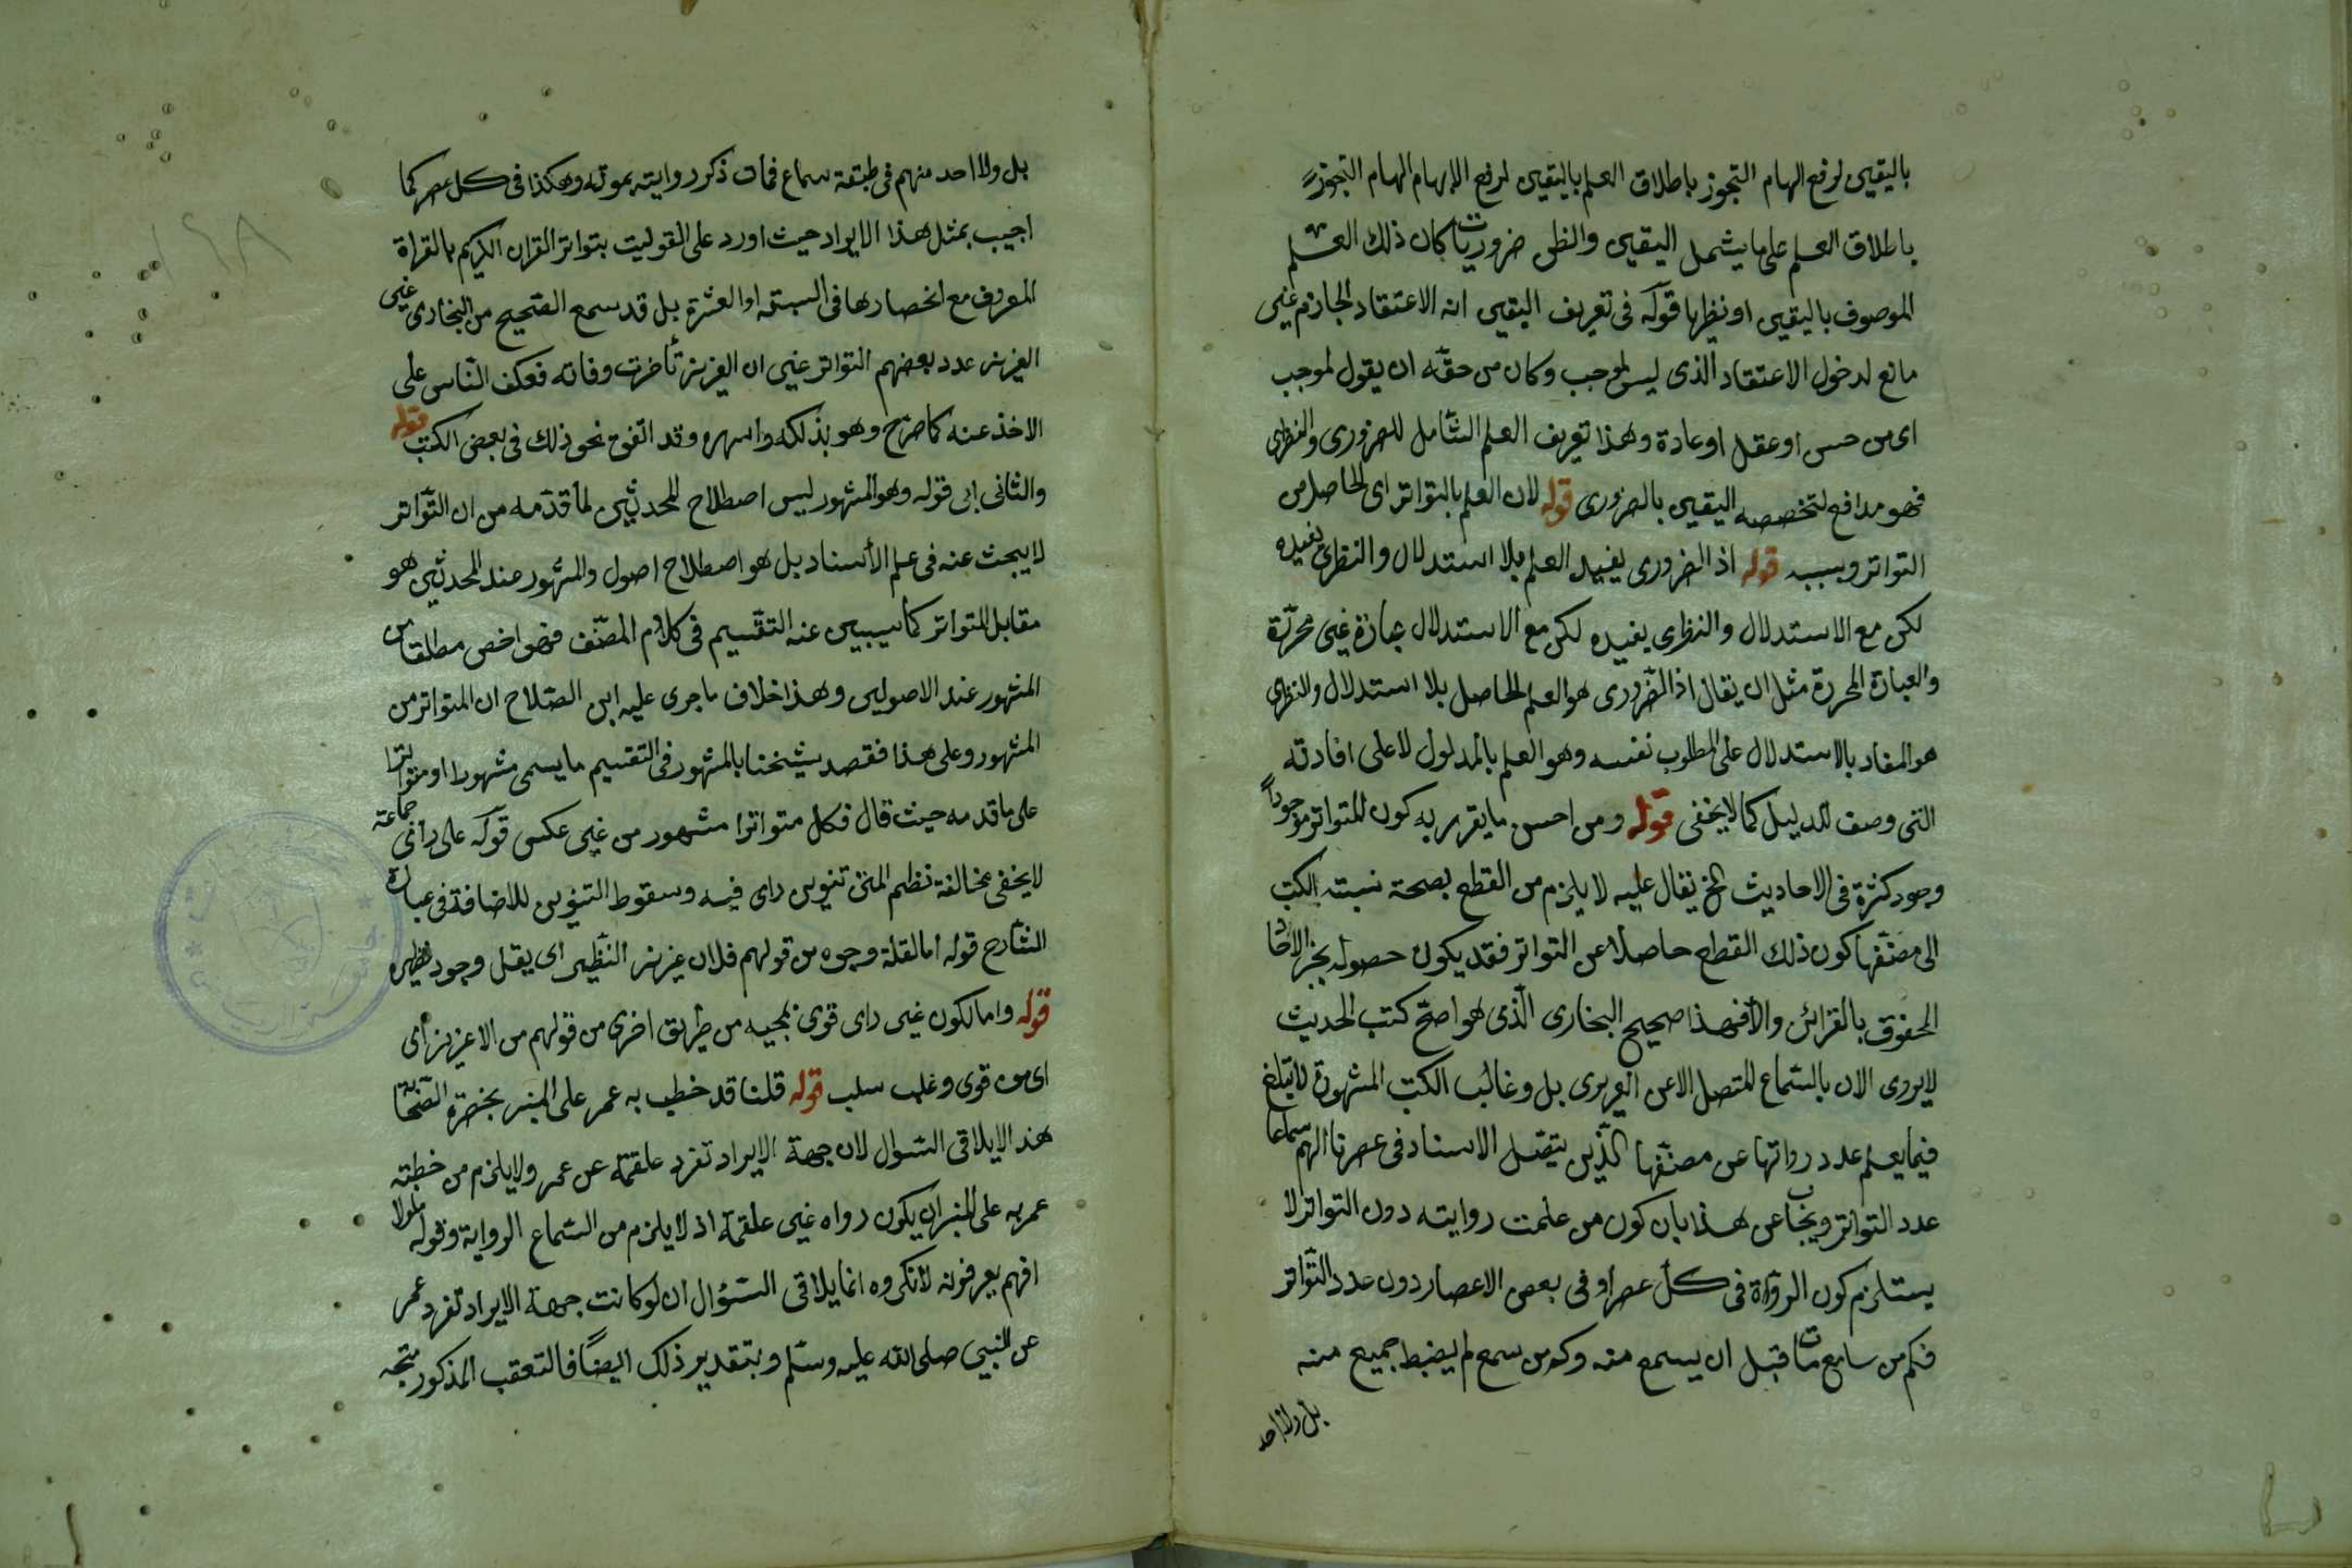 باليقين لرفع ايهام التجوز باطلاق العلم باليقين لرفع الايهام ايهام التجوز
باطلاق العلم على ما يشمل اليقين والظن ضروريا كان ذلك العلم
الموصوف باليقين او نظريا قوله في تعريف اليقين انه الاعتقاد الجازم غير
مانع لدخول الاعتقاد الذى ليس لموجب وكان من حقه ان يقول لموجب
اى من حس او عقل او عادة وهذا تعريف العلم الشامل للضرورى والنظرى
فهو مدافع لتخصصه اليقين بالضرورى قوله لان العلم بالتواتر اى الحاصل من
التواتر وبسببه قوله اذ الضرورى يفيد العلم بلا استدلال والنظرى يفيده
لكن مع الاستدلال والنظرى يفيده لكن مع الاستدلال عبارة غير محررة
والعبارة المحررة مثل ان يقال اذ الضرورى هو العلم الحاصل بلا استدلال والنظرى
هو المفاد بالاستدلال على المطلوب نفسه وهو العلم بالمدلول لا على افادته
التى وصف للدليل كما لا يخفى قوله ومن احسن ما يقرر به كون المتواتر موجودا
وجود كثرة في الاحاديث الخ يقال عليه لا يلزم من القطع بصحة نسبته الكتب
الى مصنفها كون ذلك القطع حاصلا عن التواتر فقد يكون حصوله بخبر الاحاد
المحفوف بالقرائن والا فهذا صحيح البخارى الذى هو اصح كتب الحديث
لا يروى الان بالسماع المتصل الا عن الفربرى بل وغالب الكتب المشهورة لا يبلغ
فيما يعلم عدد رواتها عن مصنفها الذين يتصل الاسناد فى عصرنا اليهم سماعا
عدد التواتر ويجاب عن هذا بان كون من علمت روايته دون التواتر لا
يستلزم كون الرواة فى كل عصر او فى بعض الاعصار دون عدد التواتر
فكم من سامع مات قبل ان يسمع منه وكم من سمع لم يضبط جميع منه
بل ولا احد
بل ولا احد منهم فى طبقة سماع فمات ذكر روايته بموته وهكذا فى كل عصر كما
اجيب بمثل هذا الايراد حيث اورد على القوليت بتواتر القران الكريم بالقراة
المعروف مع انحصارها فى السبعة او العشرة بل قد سمع الصحيح من البخارى غير
الفربرى عدد بعضهم التواتر غير ان الفربرى تأخرت وفاته فعكف الناس على
الاخذ عنه كما صرح وهو بذلكه واسهره وقد اتفق نحو ذلك فى بعض الكتب قوله
والثانى الى قوله وهو المشهور ليس اصطلاح للمحدثين لما قدمه من ان التواتر
لا يبحث عنه فى علم الاسناد بل هو اصطلاح اصول والمشهور عند المحدثين هو
مقابل المتواتر كما سيبين عنه التقسيم فى كلام المصنف فهو اخص مطلقا من
المشهور عند الاصوليين وهذا خلاف ما جرى عليه ابن الصلاح ان المتواتر من
المشهور وعلى هذا فقصد شيخنا بالمشهور فى التقسيم ما يسمى مشهورا او متواترا
على ما قدمه حيث قال فكل متواترا مشهور من غير عكس قوله على راى جماعة
لا يخفى مخالفة نظم المتن تنوين راى فيه وسقوط التنوين للاضافة فى عبارة
الشارح قوله اما لقلة وجوه من قولهم فلان عزيز النظير اى يقل وجود نظيره
قوله واما لكون غير راى قوى بمجيه من طريق اخرى من قولهم من الاعزيز اى
اى من قوى وغلب سلب قوله قلنا قد خطب به عمر على المنبر بحضرة الصحابة
هذا لا يلاقى السوال لان جهة الايراد تفرد علقمة عن عمر ولا يلزم من خطبته
عمر به على المنبر ان يكون رواه غير علقمة اذ لا يلزم من السماع الرواية وقوله فلولا
انهم يعرفونه لانكروه انما يلاقى السؤال ان لو كانت جهة الايراد تفرد عمر
عن النبى صلى الله عليه وسلم وبتقدير ذلك ايضا فالتعقب المذكور متجه